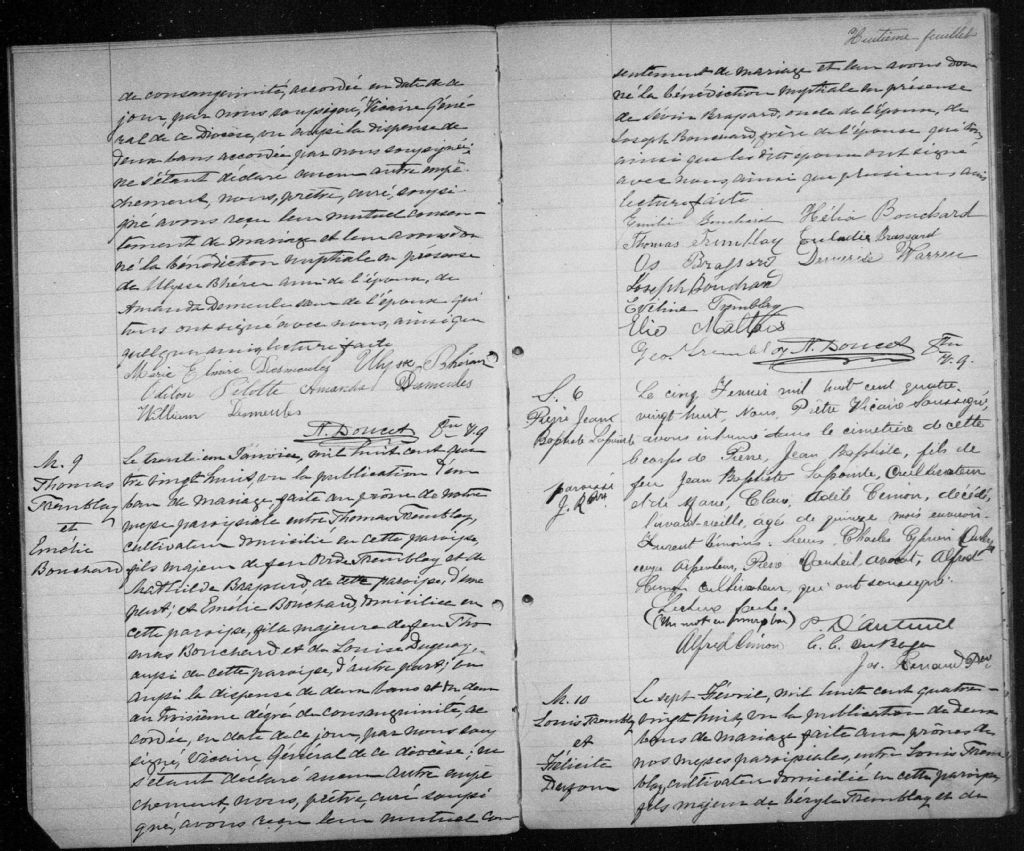 de consanguinité, accordée en date de ce
jour, par nous soussigné, Vicaire Géné-
ral de ce Diocèse, vu aussi la dispense de
deux bans accordée par nous soussigné;
ne s'étant déclaré aucun autre empê-
chement, nous, prêtre, curé, soussi-
gné avons reçu leur mutuel consen-
tement de mariage et leur avons don-
né la bénédiction nuptiale en présence
de Ulysse Bhérer ami de l'époux, de
Amanda Demeules sœur de l'époux qui
tous ont signé avec nous, ainsi que
quelques amis, lecture faite
Marie Elmire Desmeules Ulysse Bhérer
Odilon Pilotte Amanda Desmeules
William Demeules
A. Doucet Ptre V.G
M. 9
Thomas
Tremblay
et
Emélie
Bouchard
Le trente-un Janvier, mil huit cent qua-
tre vingt huit, vu la publication d'un
ban de mariage faite au prône de notre
messe paroissiale entre Thomas Tremblay,
cultivateur domicilié en cette paroisse,
fils majeur de feu Tremblay et de
Mathilde Brassard, de cette paroisse, d'une
part; et Emélie Bouchard, domiciliée en
cette paroisse, fille majeure de feu Tho-
mas Bouchard et de Louise Duguay,
aussi de cette paroisse, d'autre part; vu
aussi la dispense de deux bans et du deux
au troisième dégré de consanguinité, ac-
cordée, en date de ce jour, par nous sous-
signé, Vicaire Général de ce diocèse; ne
s'étant déclaré aucun autre empê-
chement nous, prêtre, curé soussi-
gné, avons reçu leur mutuel con-
Huitième feuillet
sentement de mariage et leur avons don-
né la bénédiction nuptiale en présence
de Brassard, oncle de l'époux, de
Joseph Bouchard, frère de l'épouse qui
ainsi que les dits époux ont signé
avec nous, ainsi que plusieurs amis
lecture faite
Emilie Bouchard Hélia Bouchard
Thomas Tremblay Brassard
Os Brassard Warren
Joseph Bouchard
Evélina Tremblay
Elie Maltais
Geo. Tremblay A. Doucet Ptre
V.G.
S. 6
Pierre Jean
Baptiste Lapointe
J. R. Ptre
Le cinq Fevrier mil huit cent quatre
vingt huit Nous, Prêtre Vicaire Soussigné,
avons inhumé dans le cimetière de cette
le corps de Pierre, Jean Baptiste, fils de
feu Jean Baptiste Lapointe, Cultivateur
et de Marie, Clara, Adèle Cimon, décédé
l'avant-veille, agés de quinze mois environ.
Furent témoins. Charles Cyprien
ecuyer Arpenteur, Pierre Dauteuil avocat, Alfred
Cimon cultivateur, qui ont soussigné.
Lecture faite.
(Un mot en marge bon) P. D'auteuil
Alfred Cimon C. C. duBerger
Jos. Renaud Ptre
M. 10
Louis Tremblay
et
Félicité
Le sept Février, mil huit cent quatre-
vingt huit, vu la publication de deux
bans de mariage faite aux prônes de
nos messes paroissiales, entre Louis Trem-
blay, cultivateur domicilié en cette paroisse,
fils majeur de Tremblay et de